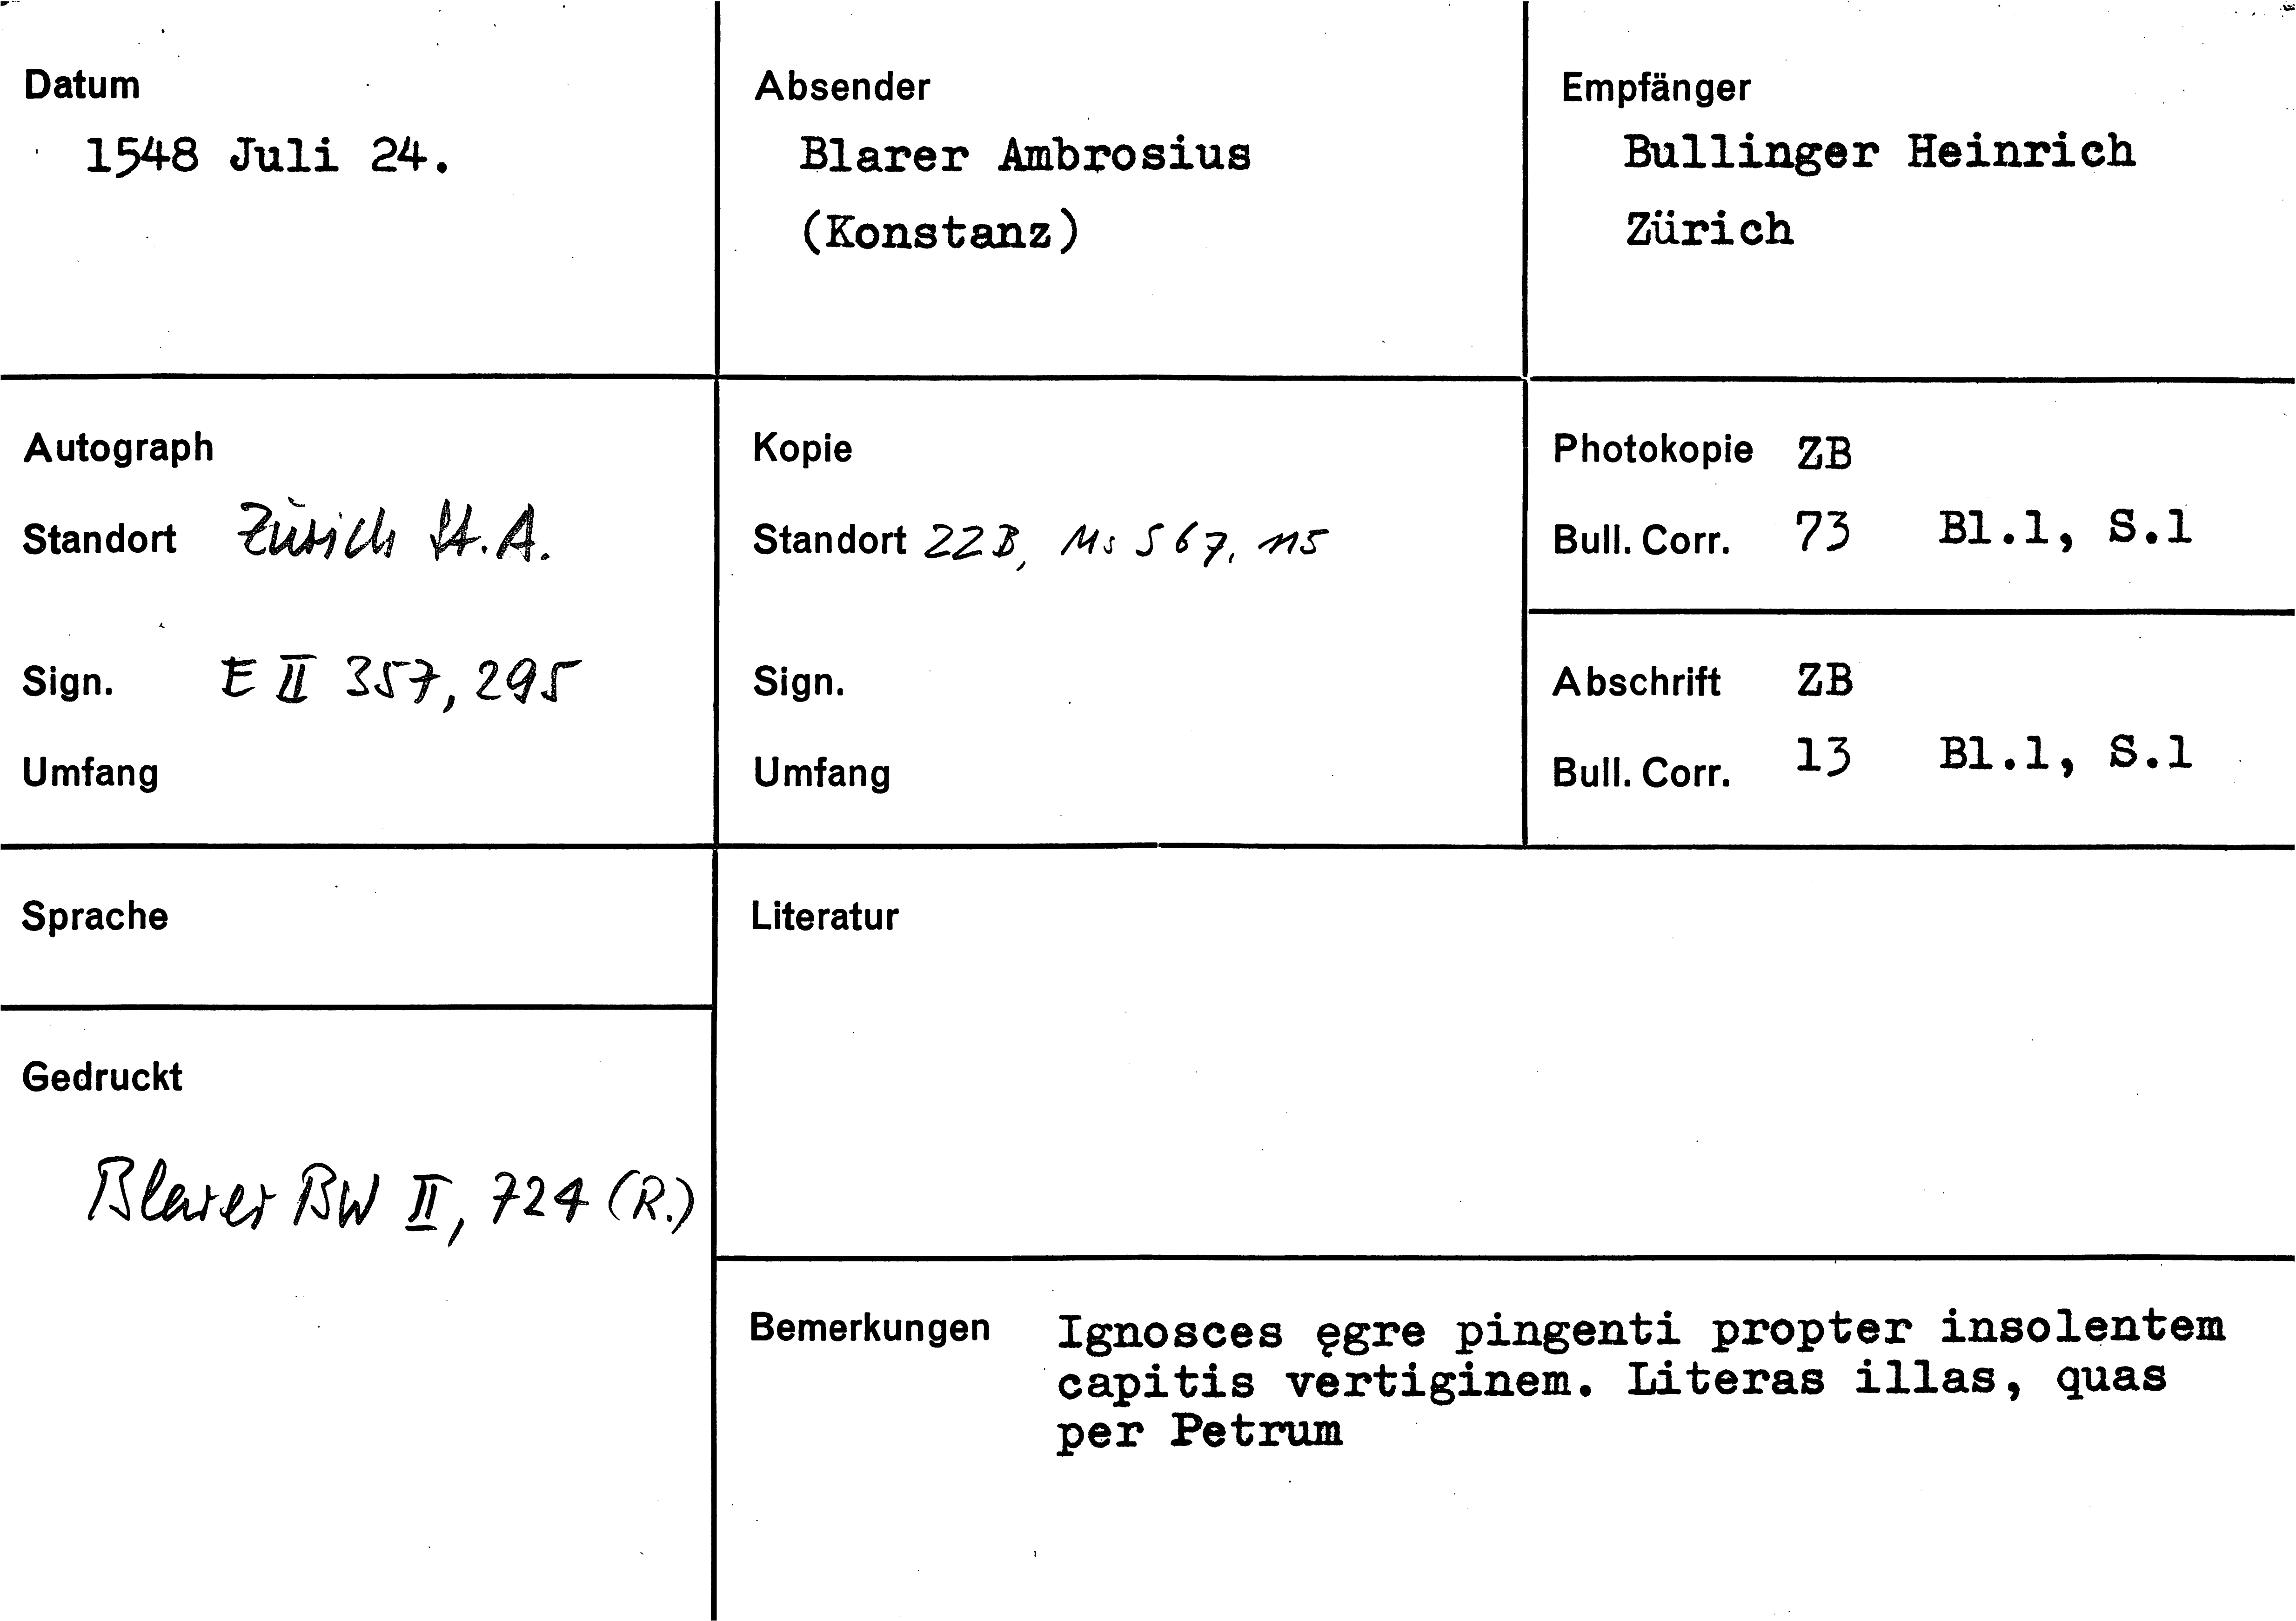 Datum
1548 Juli 24.
Absender
Blarer Ambrosius
(Konstanz)
Empfänger
Bullinger Heinrich
Zürich
Autograph
Standort Zürich St.A.
Sign. E II 357, 295
Umfang
Kopie
Standort ZZB, Ms S 67, 115
Sign.
Umfang
Photokopie ZB
Bull. Corr. 73 Bl.1, S.1
Abschrift ZB
Bull. Corr. 13 Bl.1, S.1
Sprache
Gedruckt
Blarer BW II, 724 (R.)
Literatur
Bemerkungen Ignosces ęgre pingenti propter insolentem
capitis vertiginem. Literas illas, quas
per Petrum